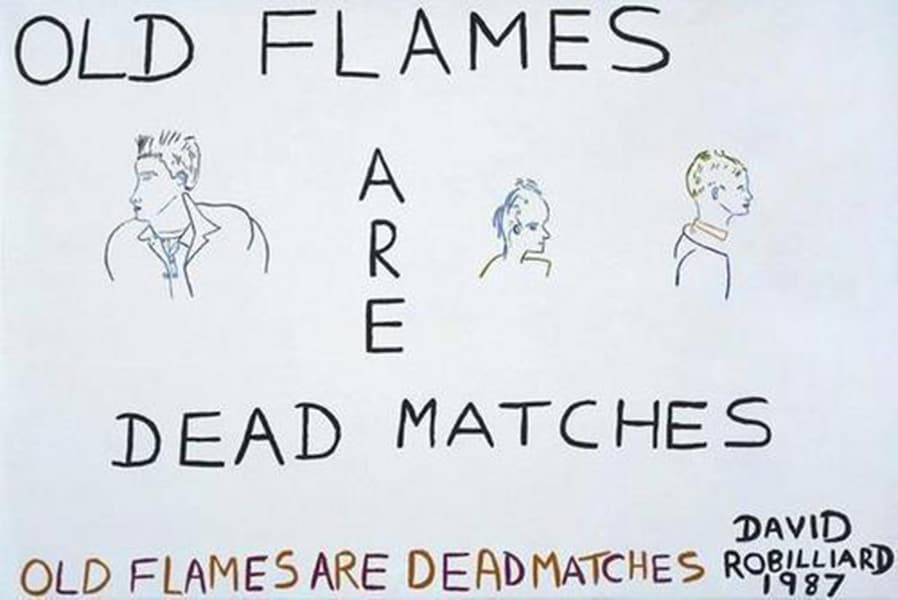 OLD FLAMES
A
R
E
DEAD MATCHES
OLD FLAMES ARE DEAD MATCHES
DAVID
ROBILLIARD
1987